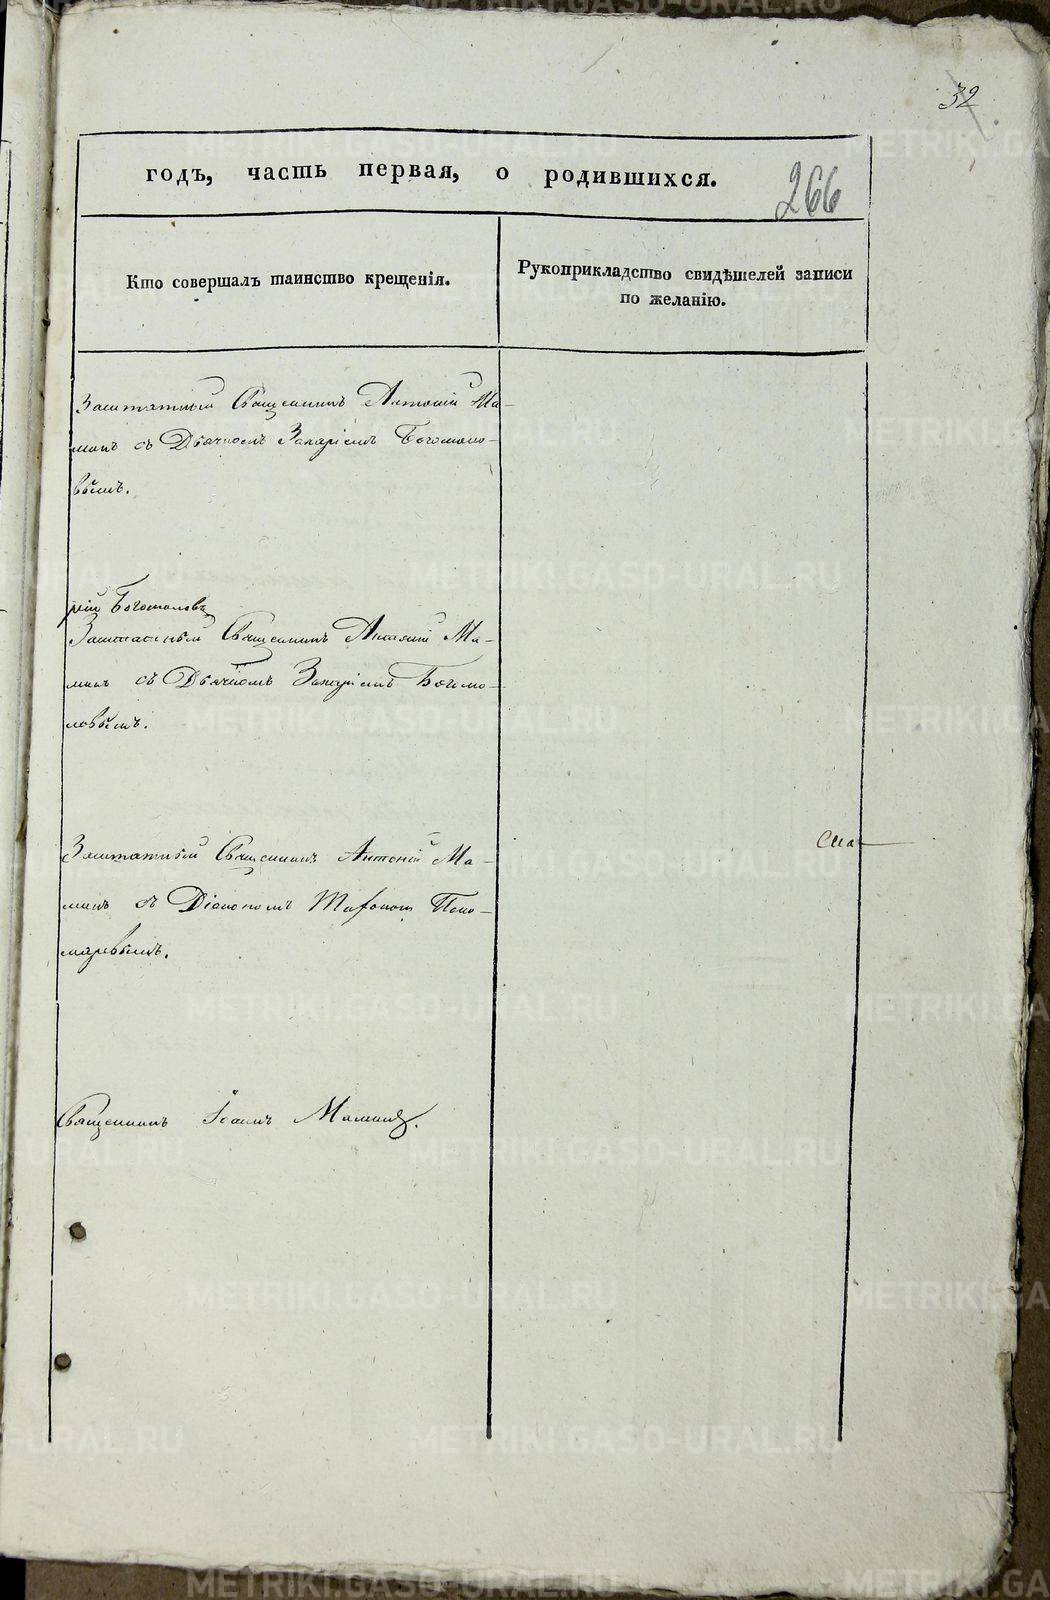 32
годъ, часть первая, о родившихся.
266
Кто совершалъ таинство крещенія.
Рукоприкладство свидѣтелей записи
по желанію.
Заштатный Священникъ Антоній Ма-
минъ съ Дьячкомъ Захаріемъ Богомоло-
вымъ.
рій Богомоловъ
Заштатный Священникъ Антоній Ма-
минъ съ Дьячкомъ Захаріемъ Богомо-
ловымъ.
Заштатный Священникъ Антоній Ма-
минъ съ Діакономъ Поно-
маревымъ.
Священникъ Іоаннъ Маминъ.
METRIKI.GASO-URAL.RU